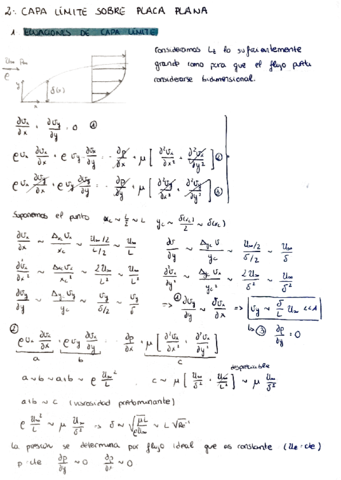 2. CAPA LÍMITE SOBRE PLACA PLANA
1 ECUACIONES DE CAPA LÍMITE
Consideramos L lo suficientemente
grande como para que el flujo pueda
considerarse bidimensional.
U∞ P∞
ρ
y δ(x)
x
∂vx/∂x + ∂vy/∂y = 0
ρ vx ∂vx/∂x + ρ vy ∂vx/∂y = - ∂p/∂x + μ [ ∂²vx/∂x² + ∂²vx/∂y² ]
ρ vx ∂vy/∂x + ρ vy ∂vy/∂y = - ∂p/∂y + μ [ ∂²vy/∂x² + ∂²vy/∂y² ]
Suponemos el punto xc ~ L/2 ~ L yc ~ δ(xc)/2 ~ δ(xc)
∂vx/∂x ~ Δx vx/xc ~ U∞/2/L/2 ~ U∞/L
~ Δy vx/yc ~ U∞/2/δ/2 ~ U∞/δ
∂²vx/∂x² ~ Δx vx/xc² ~ 2U∞/L² ~ U∞/L²
∂²vx/∂y² ~ Δy vx/yc² ~ 2U∞/δ² ~ U∞/δ²
∂vy/∂y ~ Δy vy/yc ~ vy/δ/2 ~ vy/δ
⇒ ∂vy/∂y ~ ∂vx/∂x ⇒ vy ~ δ/L U∞ <<1
∂p/∂y = 0
ρ vx ∂vx/∂x + ρ vy ∂vx/∂y = - ∂p/∂x + μ [ ∂²vx/∂x² + ∂²vx/∂y² ]
a b c
despreciable
a ~ b ~ a+b ~ ρ U∞²/L c ~ μ [ U∞/δ² + U∞/L² ] ~ μ U∞/δ²
a+b ~ c (viscosidad predominante)
ρ U∞²/L ~ μ U∞/δ² ⇒ δ ~ √(μL/ρU∞) ~ L √Re⁻¹
La presión se determina por flujo ideal que es constante (Ue = cte)
p = cte ∂p/∂y ~ 0 ∂p/∂x ~ 0